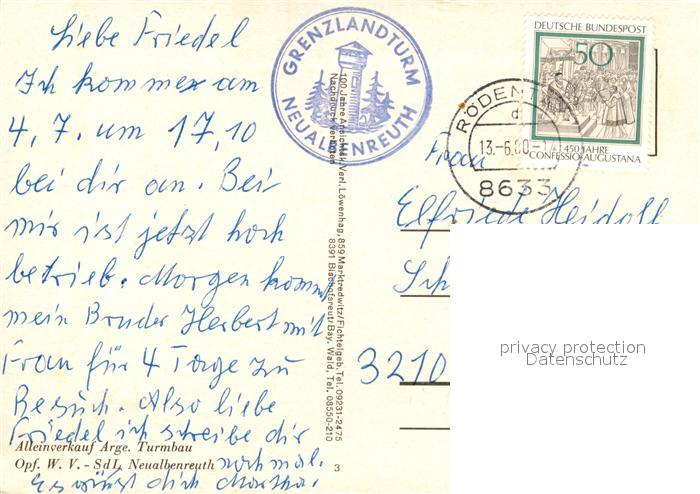 Liebe Friedel
Ich komme am
4. 7. um 17,10
bei dir an. Bei
mir ist jetzt hoch
betrieb. Morgen kommt
mein Bruder Herbert mit
Frau für 4 Tage zu
Besuch. Also liebe
Friedel ich schreibe dir
noch mal.
Es grüßt dich Martha.
Alleinverkauf Arge. Turmbau
Opf. W. V. - SdL Neualbenreuth
3
GRENZLANDTURM
NEUALBENREUTH
100 Jahre Ansichtsk.Verl. Löwenhag, 859 Marktredwitz/Fichtelgeb. Tel. 09231-2475
Nachdruck verboten
8391 Bischofsreut/Bay. Wald, Tel. 08550-210
DEUTSCHE BUNDESPOST
50
450 JAHRE
CONFESSIO AUGUSTANA
d
13.-6.80-
8633
Frau
Elfriede
Sch
3210
privacy protection
Datenschutz